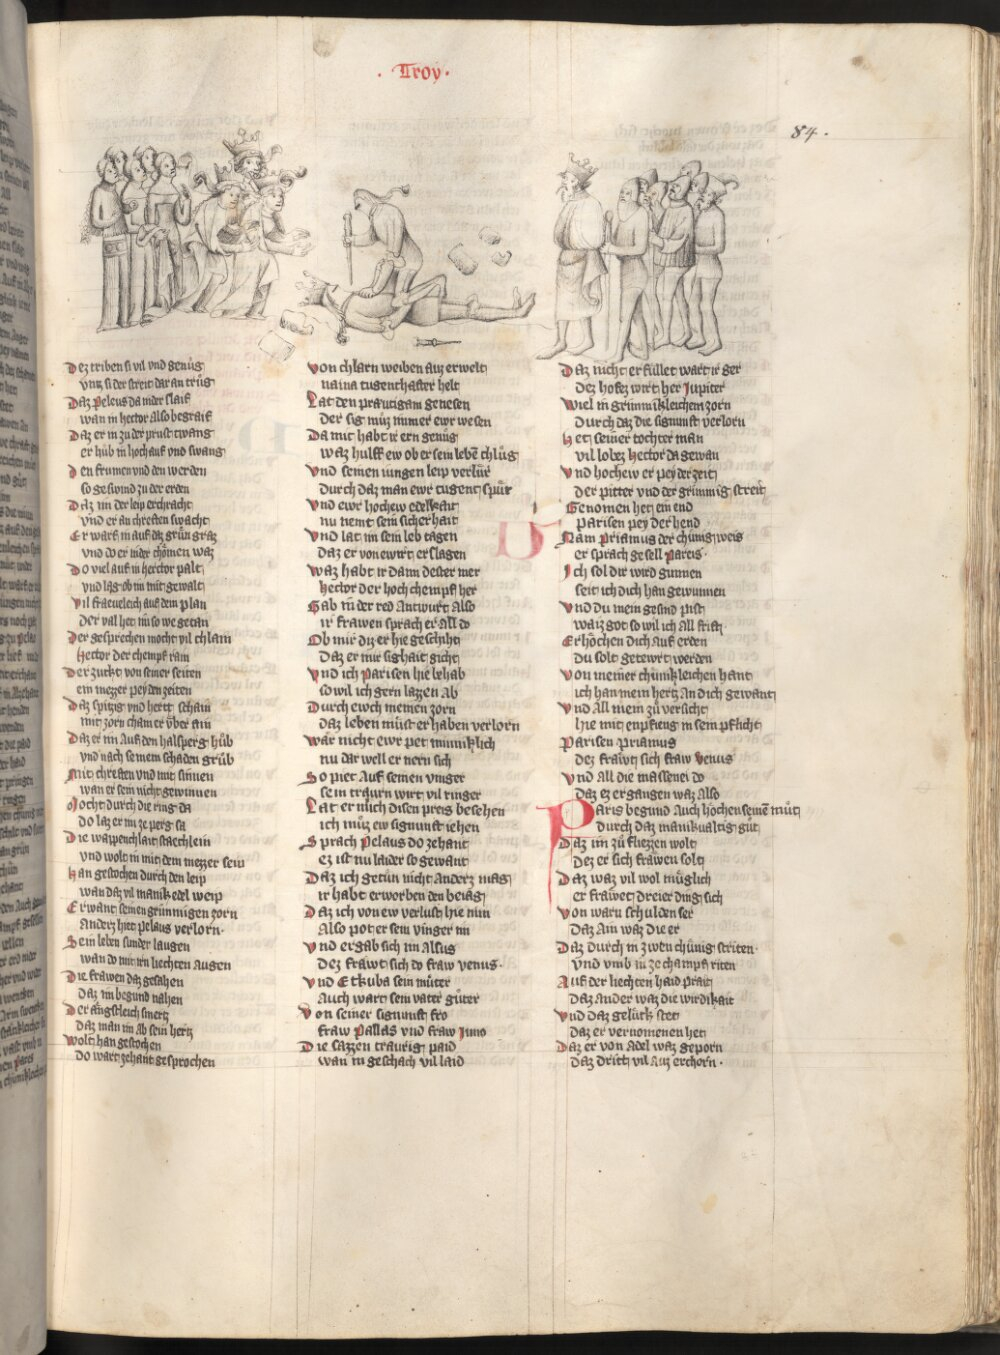 · Troy ·
84 ·
Dez triben si vil vnd genůg
vntz si der streit dar an trůg
Daz Peleus da nider slaif
wan in hector also begraif
Daz er in zu der prust twang
er hůb in hoch auf vnd swang
Den frumen vnd den werden
so geswind zu der erden
Daz im der leip erchracht
vnd er an chreften swacht
Er warf in auf daz grün graz
vnd do er nider chomen waz
Do viel auf in hector palt
vnd lag ob im mit gewalt
Vil fraeueleich auf dem plan
Der val het im so we getan
Der gesprechen mocht vil chlain
Hector der chempf ram
Der zuckt von seiner seiten
ein mezzer pey den zeiten
Daz spitzig vnd hertt schain
mit zorn cham er vber ain
Daz er im Auf den halsperg hůb
vnd nach seinem schaden grůb
Mit chreften vnd mit sinnen
wan er sein nicht gewinnen
Mocht durch die ring da
do laz er im ze perg sa
Die wappenchlait staechlein
vnd wolt in mit dem mezzer sein
Han gestochen durch den leip
wan daz vil manik edel weip
Erwant seinen grimmigen zorn
Anderz hiet Pelaus verlorn ·
Sein leben sunder laugen
wan do mit irn liechten augen
Die frawen daz gesahen
daz im begund nahen
Der angstleich smertz
daz man im ab sein hertz
Wolt han gestochen
do wart zehant gesprochen
Von chlarn weiben auz erwelt
naina tugenthafter helt
Lat den praeutigam genesen
der sig můz immer ewr wesen
Da mit habt ir ern genůg
waz hulff ew ob er sein leben chlůg
Vnd seinen iungen leip verlür
durch daz man ewr tugent spür
Vnd ewr hochew edelkait
nu nemt sein sicherhait
Vnd lat im sein leb tagen
daz er von ew wirt erslagen
Waz habt ir dann dester mer
hector der hoch chempf her
Gab in der red Antwurt Also
ir frawen sprach er all do
Ob mir diz er hie geschiht
daz er mir sighait gicht
Vnd ich Parisen hie behab
so wil ich gern lazzen ab
Durch ewch meinen zorn
daz leben müst er haben verlorn
Wär nicht ewr pet minniklich
nu dar well er nern sich
So piet Auf seinen vinger
sein traurn wirt vil ringer
Lat er mich disen preis besehen
ich můz ew signunft iehen
Sprach Pelaus do zehant
ez ist nu laider so gewant
Daz ich getün nicht Anderz mag
ir habt erworben den beiag
Daz ich von ew verlust hie nim
Also pot er sein vinger im
Vnd ergab sich im Alsus
dez frawt sich do fraw venus ·
Vnd Etkuba sein müter
Auch wart sein vater güter
Von seiner signunft fro
fraw Pallas vnd fraw Juno
Die sazzen traurig paid
wan in geschach vil laid
Daz nicht erfüllet wart ir ger
Dez hofez wirt her Jupiter
Wiel in grimmikleichem zorn
Durch daz die signunft verlorn
Het seiner tochter man
vil lobez Hector da gewan
Vnd hochew er pey der zeit
Der pitter vnd der grimmig streit
Genomen het ein end
Parisen pey der hend
Nam Priamus der chünig weis
er sprach gesell Pareis ·
Ich sol dir wird gunnen
seit ich dich han gewunnen
Vnd du mein gesind pist
waiz got so wil ich All frist
Erhochen dich Auf erden
Du solt getewrt werden
Von meiner chüniklichen hant
ich han mein hertz An dich gewant
Vnd All mein zů versicht
hie mit enpfieng in sein pflicht
Parisen Priamus
dez frawt sich fraw Venus
Vnd All die massenei do
Daz ez ergangen waz Also
Paris begund Auch hochen seinen můt
Durch daz manikualtig gůt
Daz im zů fliezzen wolt
Dez er sich frawen solt
Daz waz vil wol müglich
er frawet dreier ding sich
Von warn schulden ser
Daz Ain waz die er
Daz durch in zwen chünig striten ·
Vnd vmb in ze champf riten
Auf der liechten haid prait
daz Ander waz die wirdikait
Vnd daz gelück stet
daz er vernomenen het
Daz er von Adel waz geporn
daz dritt vil Auz erchorn ·